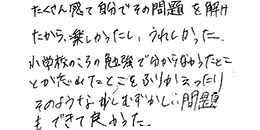 たくさん感て自分でその問題を解け
たから、楽しかったし、うれしかった。
小学校のころの勉強で分からなかったとこ
とがだれたとこをふりかえったり
そのような少しむずかしい問題
もできて良かった。